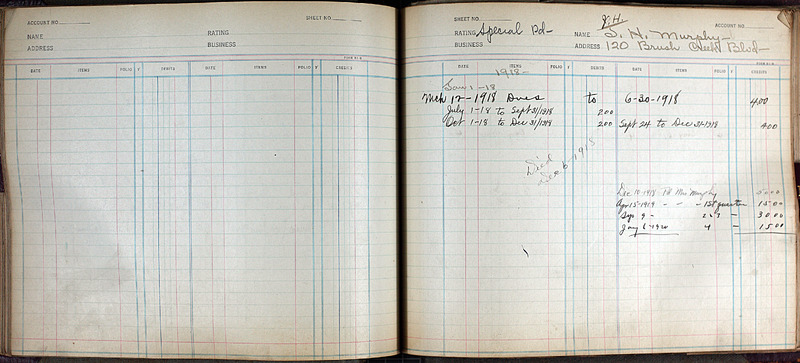 ACCOUNT NO.
SHEET NO.
NAME
RATING
ADDRESS
BUSINESS
DATE ITEMS FOLIO ✓ DEBITS DATE ITEMS FOLIO ✓ CREDITS
SHEET NO.
J.H.
ACCOUNT NO.
RATING Special Pd-
NAME S. H. Murphy-
BUSINESS
ADDRESS 120 Brush Blvd-
DATE ITEMS FOLIO ✓ DEBITS DATE ITEMS FOLIO ✓ CREDITS
1918-
Jan 1-18
Mch 12-1918 Dues to 6-30-1918 400
July 1-18 to Sept 31/1918 200
Oct 1-18 to Dec 31/1918 200 Sept 24 to Dec 31-1918 400
Died
Dec 6-1918
Dec 10-1918 Mrs Murphy 5000
Apr 15-1919 - - - 1st quarter 1500
Sep 9 - 2 & 3 - 3000
Jany 6-1920 4 - 1500